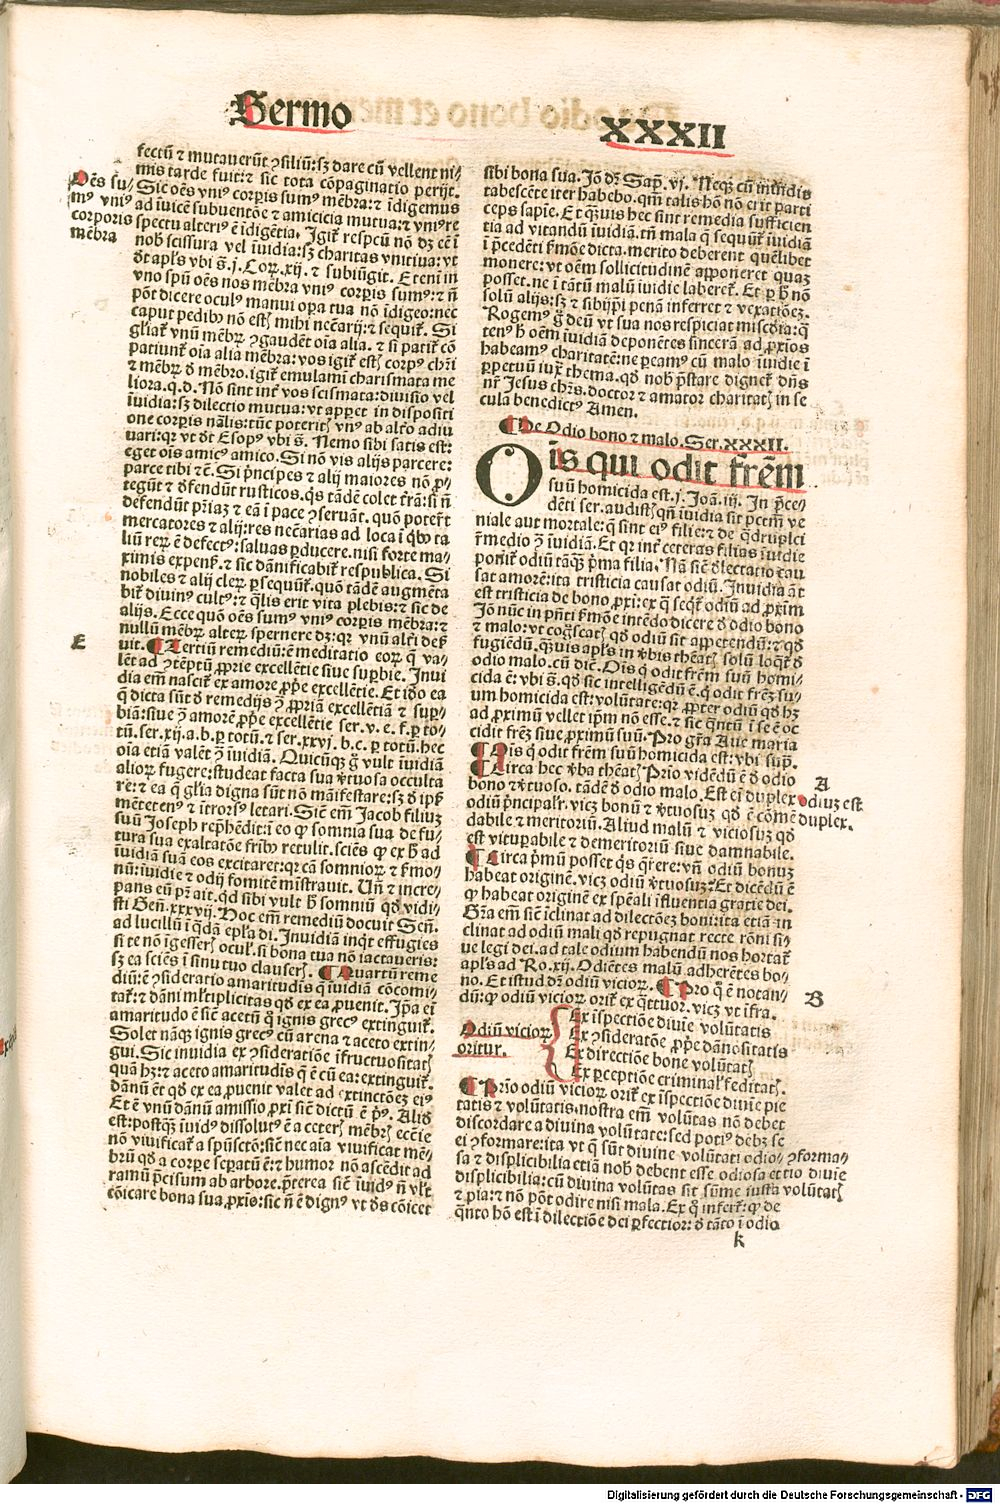 Sermo
XXXII
fectū ⁊ mutauerūt ꝯsiliū: sꝫ dare cū vellent ni⸗
mis tarde fuit: ⁊ sic tota cōpaginatio perijt.
Sic oēs vniꝰ corpis sumꝰ mēbra: ⁊ īdigemus
ad iuicē subuentōe ⁊ amicicia mutua: ⁊ vniꝰ re
spectu alteriꝰ ē īdigētia. Igit̄ respcū nō dꝫ eē ī
nob̄ scissura vel īuidia: sꝫ charitas vnitiua: vt
dt apl̄s vbi s̄. j. Coꝝ. xij. ⁊ subiūgit. Et eteni in
vno spū oēs nos mēbra vniꝰ corpis sumꝰ: ⁊ n̄
pōt dicere oculꝰ manui opa tua nō īdigeo: nec
caput pedibꝰ nō estꝭ mihi necārij: ⁊ sequit̄. Si
gliat̄ vnū mēbꝝ ꝯgaudēt oīa alia. ⁊ si patit̄ cō
patiunt̄ oīa alia mēbra: vos igit̄ estꝭ corpꝰ chri
⁊ mēbꝝ d̄ mēbro. igit̄ emulamī charismata me
liora. q. d. Nō sint int̄ vos scismata: diuisio vel
īuidia: sꝫ dilectio mutua: vt appet in dispositi
one corpis nālis: tūc poteritꝭ vnꝰ ab altō adiu
uari: qꝛ vt dt Esopꝰ vbi s̄. Nemo sibi satis est:
eget ois amicꝰ amico. Si nō vis alijs parcere:
parce tibi ⁊c̄. Si pncipes ⁊ alij maiores nō p⸗
tegūt ⁊ dfendūt rusticos. qs tādē colet trā: si n̄
defendūt priaꝫ ⁊ eā ī pace ꝯseruāt. quō poter̄t
mercatores ⁊ alij: res necārias ad loca ī qbꝰ ta
liū reꝝ ē defectꝰ: saluas pducere. nisi forte ma⸗
ximis expens̄. ⁊ sic dānificabit̄ respublica. Si
nobiles ⁊ alij cleꝝ psequūt̄. quō tādē augmēta
bit̄ diuinꝰ cultꝰ: ⁊ qlis erit vita plebis: ⁊ sic de
alijs. Ecce quō oēs sumꝰ vniꝰ corpis mēbra: ⁊
nullū mēbꝝ alteꝝ spernere dꝫ: qꝛ vnū altī deƀ
uit. ¶ Tertiū remediū: ē meditatio eoꝝ q va⸗
lēt ad ꝯtēptū pprie excellētie siue supbie. Inui
dia em̄ nascit̄ ex amore ppe excellētie. Et iō ea
q dicta sūt d̄ remedijs ꝯ ppriā excellētiā ⁊ sup⸗
biā: siue ꝯ amorē ppe excellētie ser. v. e. f. p to⸗
tū. ser. xij. a. b. p totū. ⁊ ser. xxvj. b. c. p totū. hec
oīa etiā valēt ꝯ īuidiā. Quicūqꝫ g̊ vult īuidiā
alioꝝ fugere: studeat facta sua v̄tuosa occulta
re: ⁊ ea q glia digna sūt nō māifestare: sꝫ ī ipi
mētetenꝰ ⁊ ītrorsꝰ letari. Sic em̄ Jacob filiuꝫ
suū Joseph rephēdit: ī eo ꝙ somnia sua de fu⸗
tura sua exaltatōe frībꝰ retulit. sciēs ꝙ ex h̄ ad
īuidiā suā eos excitaret: qꝛ cā somnioꝝ ⁊ fmo⸗
nū: iuidie ⁊ odij fomitē ministrauit. Uñ ⁊ incre⸗
pans eū pr̄ ait. qd sibi vult h̄ somniū qd̄ vidi⸗
sti Gen̄. xxxvij. Hoc em̄ remediū docuit Sen̄.
ad lucillū ī qdā epla di. Inuidiam inqt effugies
si te nō īgesserꝭ ocul̄. si bona tua nō iactaueris:
sꝫ ea sciēs ī sinu tuo clauserꝭ. ¶ Quartū reme
diū: ē ꝯsideratio amaritudis q īuidiā cōcomi⸗
tat̄: ⁊ dāni ml̄tiplicitas qd̄ ex ea puenit. Ipa ei
amaritudo ē sic acetū q ignis grecꝰ extinguit̄.
Solet nāqꝫ ignis grecꝰ cū arena ⁊ aceto extin⸗
gui. Sic inuidia ex ꝯsideratiōe īfructuositatꝭ
quā hꝫ: ⁊ aceto amaritudis q ē cū ea: extinguit̄.
Dānū ēt qd̄ ex ea puenit valet ad extinctōeꝫ eiꝰ
Et ē vnū dānū amissio pxi sic dictū ē pꝰ. Aliđ
est: postqꝫ iuidꝰ dissolutꝰ ē a ceterꝭ mēbrꝭ eccīe
nō viuificat̄ a spūsctō: sic nec aīa viuificat mē⸗
brū qd̄ a corpe sepatū ē: ⁊ humor nō ascēdit ad
ramū pcisum ab arbore. pterea sic iuidꝰ n̄ vlt
cōicare bona sua pxio: sic n̄ ē dignꝰ vt ds cōicet
Oēs su⸗
mꝰ vniꝰ
corporis
mēbra
E
sibi bona sua. Jō dr̄ Sap̄. vj. Neqꝫ cū inuidis
tabescēte iter habebo. qm̄ talis hō nō erit parti
ceps sapīe. Et qꝫuis hec sint remedia sufficien
tia ad vitandū īuidiā. tn̄ mala q sequūt̄ īuidiā
ī pcedēti fmōe dicta. merito deberent quēlibet
monere: vt oēm sollicitudinē apponeret quaꝫ
posset. ne ī tātū malū iuidie laberet̄. Et p h̄ nō
solū alijs: sꝫ ⁊ sibijpi penā inferret ⁊ vexatiōeꝫ.
Rogemꝰ g̊ deū vt sua nos respiciat miscdīa: q
tenꝰ h̄ oēm īuidiā deponētes sincerā ad pxīos
habeamꝰ charitatē: ne peamꝰ cū malo īuidie ī
ppetuū iux̄ thema. qd̄ nob̄ pstare dignet̄ dn̄s
nr̄ Jesus chrs. doctor ⁊ amator charitatꝭ in se
cula benedictꝰ Amen.
¶ De Odio bono ⁊ malo. Ser. XXXII.
Oīs qui odit frēm
suū homicida est. j. Joā. iij. In pce⸗
dēti ser. audistꝭ qn̄ iuidia sit pctm̄ ve
niale aut mortale: q sint eiꝰ filie: ⁊ de qdruplci
r̄medio ꝯ īuidiā. Et qꝛ int̄ ceteras filias īuidie
ponit̄ odiū tāqꝫ pma filia. Nā sic dlectatio cau
sat amorē: ita tristicia causat odiū. Inuidia āt
est tristicia de bono pxi: ex q seqt̄ odiū ad pxim̄
Jō nūc in pnti fmōe intēdo dicere d̄ odio bono
⁊ malo: vt cogscatꝭ qd̄ odiū sit appetendū: ⁊ qd̄
fugiēdū. qꝫuis apl̄s in v̄bis thēatꝭ solū loqt̄ d̄
odio malo. cū dic̄. Oīs q odit frēm suū homi⸗
cida ē: vbi s̄. qd̄ sic intelligēdū ē. q odit frēꝫ su⸗
um homicida est: volūtate: qꝛ ppter odiū qd̄ hꝫ
ad pximū vellet ipm nō esse. ⁊ sic qntū ī se ē oc
cidit frēꝫ siue pximū suū. Pro grā Aue maria
¶ Oīs q odit frēm suū homicida est: vbi sup̄.
¶ Circa hec v̄ba thēatꝭ Prīo vidēdū ē d̄ odio
bono ⁊ v̄tuoso. tādē d̄ odio malo. Est eī duplex
odiū pncipalr̄. vicꝫ bonū ⁊ v̄tuosuꝫ qd̄ ē cōmē
dabile ⁊ meritoriū. Aliud malū ⁊ viciosuꝫ qd̄
est vitupabile ⁊ demeritoriū siue damnabile.
¶ Circa pmū posset qs qrere: vn̄ odiū bonuꝫ
habeat originē. vicꝫ odiū v̄tuosuꝫ? Et dicēdū ē
ꝙ habeat originē ex spēali īfluentia gratie dei.
Grā em̄ sic īclinat ad dilectōeꝫ boni: ita etiā in
clinat ad odiū mali qd̄ repugnat recte rōni si⸗
ue legi dei. ad tale odium habendū nos hortat̄
apl̄s ad Ro. xij. Odiētes malū adherētes bo⸗
no. Et istud dr̄ odiū vicioꝝ. ¶ Pro q ē notan⸗
dū: ꝙ odiū vicioꝝ orit̄ ex qttuor. vicꝫ vt īfra.
Odiū vicioꝝ
oritur.
Ex īspectiōe diuīe volūtatis
Ex ꝯsideratōe ppe dānositatis
Ex directiōe bone volūtatꝭ
Ex pceptiōe criminal̄ feditatꝭ.
¶ Prīo odiū vicioꝝ orit̄ ex īspectiōe diuīe pie
tatis ⁊ volūtatis. nostra em̄ volūtas nō debet
discordare a diuina volūtate: sed potiꝰ debꝫ se
ei ꝯformare: ita vt q sūt diuine volūtati odio⸗
sa ⁊ displicibilia etiā nob̄ debent esse odiosa et
displicibilia: cū diuina volūtas sit sūme iusta
⁊ pia: ⁊ nō pōt odire nisi mala. Ex q infert̄: ꝙ de
qnto hō est ī dilectiōe dei pfectior: d̄ tāto ī odio
A
odiuꝫ est
duplex.
B
ꝯforma⸗
tio diuie
volūtatꝭ
k
Digitalisierung gefördert durch die Deutsche Forschungsgemeinschaft - DFG